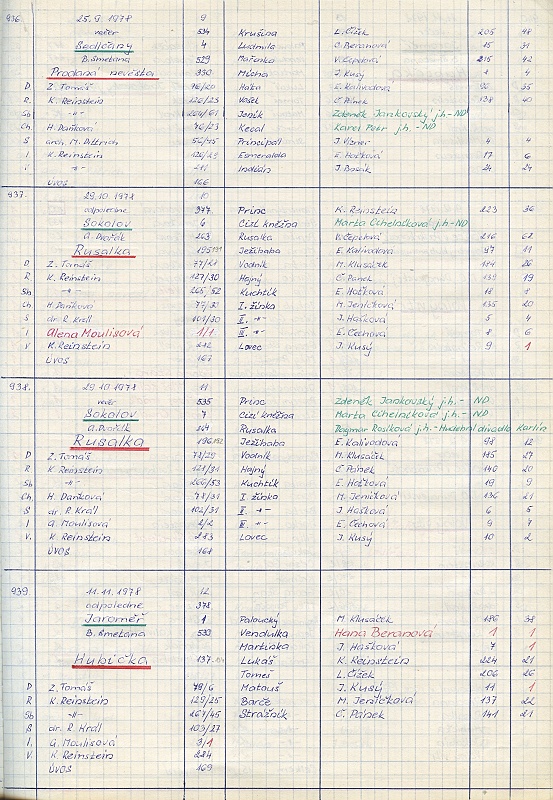 936. 25.9.1978 9
večer 534 Krušina L. Čížek 205 48
Sedlčany 4 Ludmila O. Beranová 15 31
B. Smetana 529 Mařenka V. Čepelová 215 42
Prodaná nevěsta 330 Mícha J. Kusý 1 4
D Z. Tomáš 76/20 Háta E. Kalivodová 35
R. K. Reinstein 126/23 Vašek Č. Pánek 138 40
Sb -"- Jeník Zdeněk Jankovský j.h. - ND
Ch. H. Daňková 76/23 Kecal Karel Petr j.h. - ND
S arch. M. Dittrich 56/15 Principál J. Vizner 4 4
I. K. Reinstein Esmeralda E. Hošková 17 6
V -"- Indián J. Bosák 24 24
ÚVOS 166
937. 29.10.1978 10
odpoledne 377 Princ K. Reinstein 223 36
Sokolov 6 Cizí kněžna Marta Cihelníková j.h. - ND
A. Dvořák 263 Rusalka V. Čepelová 216 62
Rusalka Ježibaba E. Kalivodová 97 11
D Z. Tomáš 77/21 Vodník M. Klusáček 114 26
R. K. Reinstein 127/30 Hajný Č. Pánek 139 19
Sb -"- 265/52 Kuchtík E. Hošková 18 1
Ch. H. Daňková I. žínka M. Jeníčková 135 20
S dr. R. Král 101/30 II. -"- J. Hašková 5 4
I Alena Moulisová 1/1 III. -"- E. Čechová 8 6
V K. Reinstein 212 Lovec J. Kusý 9 1
ÚVOS 167
938. 29.10.1978 11
večer 535 Princ Zdeněk Jankovský j.h. - ND
Sokolov 7 Cizí kněžna Marta Cihelníková j.h. - ND
A. Dvořák 264 Rusalka Dagmar Rosíková j.h. - Hudební divadlo Karlín
Rusalka Ježibaba E. Kalivodová 98 12
D Z. Tomáš 78/29 Vodník M. Klusáček 115 27
R K. Reinstein 128/31 Hajný Č. Pánek 140 20
Sb -"- 266/53 Kuchtík E. Hošková 19 9
Ch. H. Daňková 78/31 I. žínka M. Jeníčková 136 21
S dr. R. Král 102/31 II. -"- J. Hašková 6 5
I A. Moulisová 2/2 III. -"- E. Čechová 9 7
V. K. Reinstein 213 Lovec J. Kusý 10 2
ÚVOS 168
939 11.11.1978 12
odpoledne 378
Jaroměř 1 Paloucký M. Klusáček 186 38
B. Smetana 530 Vendulka Hana Beranová 1 1
Martinka J. Hašková 7 1
Hubička 137. Lukáš K. Reinstein 224 21
Tomeš L. Čížek 206 26
D Z. Tomáš 79/6 Matouš J. Kusý 11 1
R K. Reinstein 129/25 Barče M. Jeníčková 137 22
Sb -"- 267/45 Strážník Č. Pánek 141 21
S dr. R. Král 103/27
I. A. Moulisová 3/1
V K. Reinstein 214
ÚVOS 169